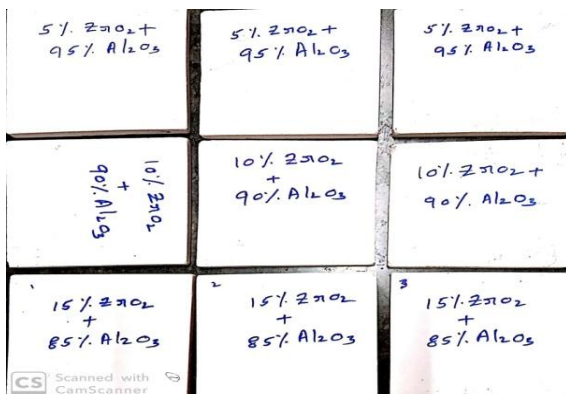 5% ZrO₂ +
95% Al₂O₃
5% ZrO₂ +
95% Al₂O₃
5% ZrO₂ +
95% Al₂O₃
10% ZrO₂
+
90% Al₂O₃
10% ZrO₂
+
90% Al₂O₃
10% ZrO₂ +
90% Al₂O₃
15% ZrO₂
+
85% Al₂O₃
2
15% ZrO₂
+
85% Al₂O₃
3
15% ZrO₂
+
85% Al₂O₃
CS Scanned with
CamScanner